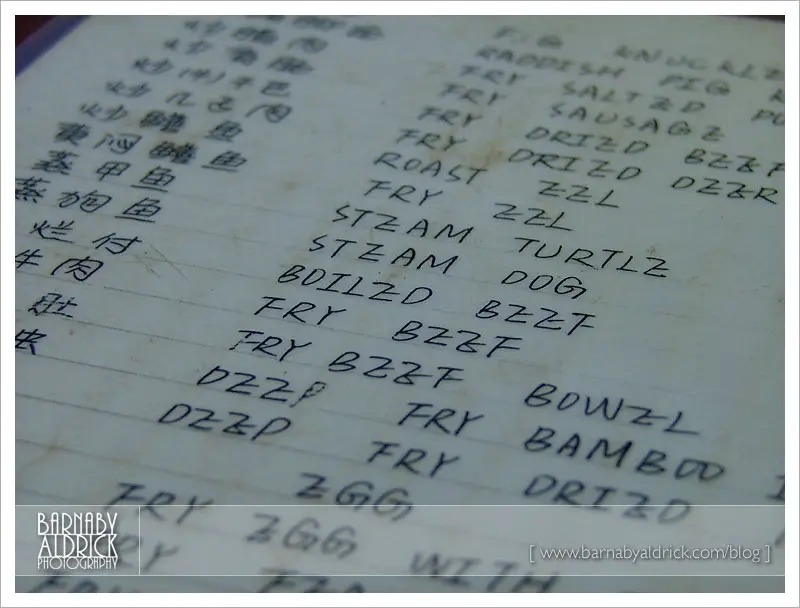 炒腊肉 RADDISH PIG
FRY SALTZD
炒 FRY SAUSAGZ
炒几子肉 FRY DRIZD BZZF
炒鳝鱼 FRY DRIZD DZZR
黄闷鳝鱼 ROAST ZZL
FRY ZZL
蒸甲鱼 STZAM TURTLZ
蒸狗鱼 STZAM DOG
烂付 BOILZD BZZF
牛肉 FRY BZZF
肚 FRY BZZF BOWZL
虫 DZZP FRY BAMBOO
DZZP FRY DRIZD
FRY ZGG
FRY ZGG WITH
BARNABY
ALDRICK
PHOTOGRAPHY
[ www.barnabyaldrick.com/blog ]